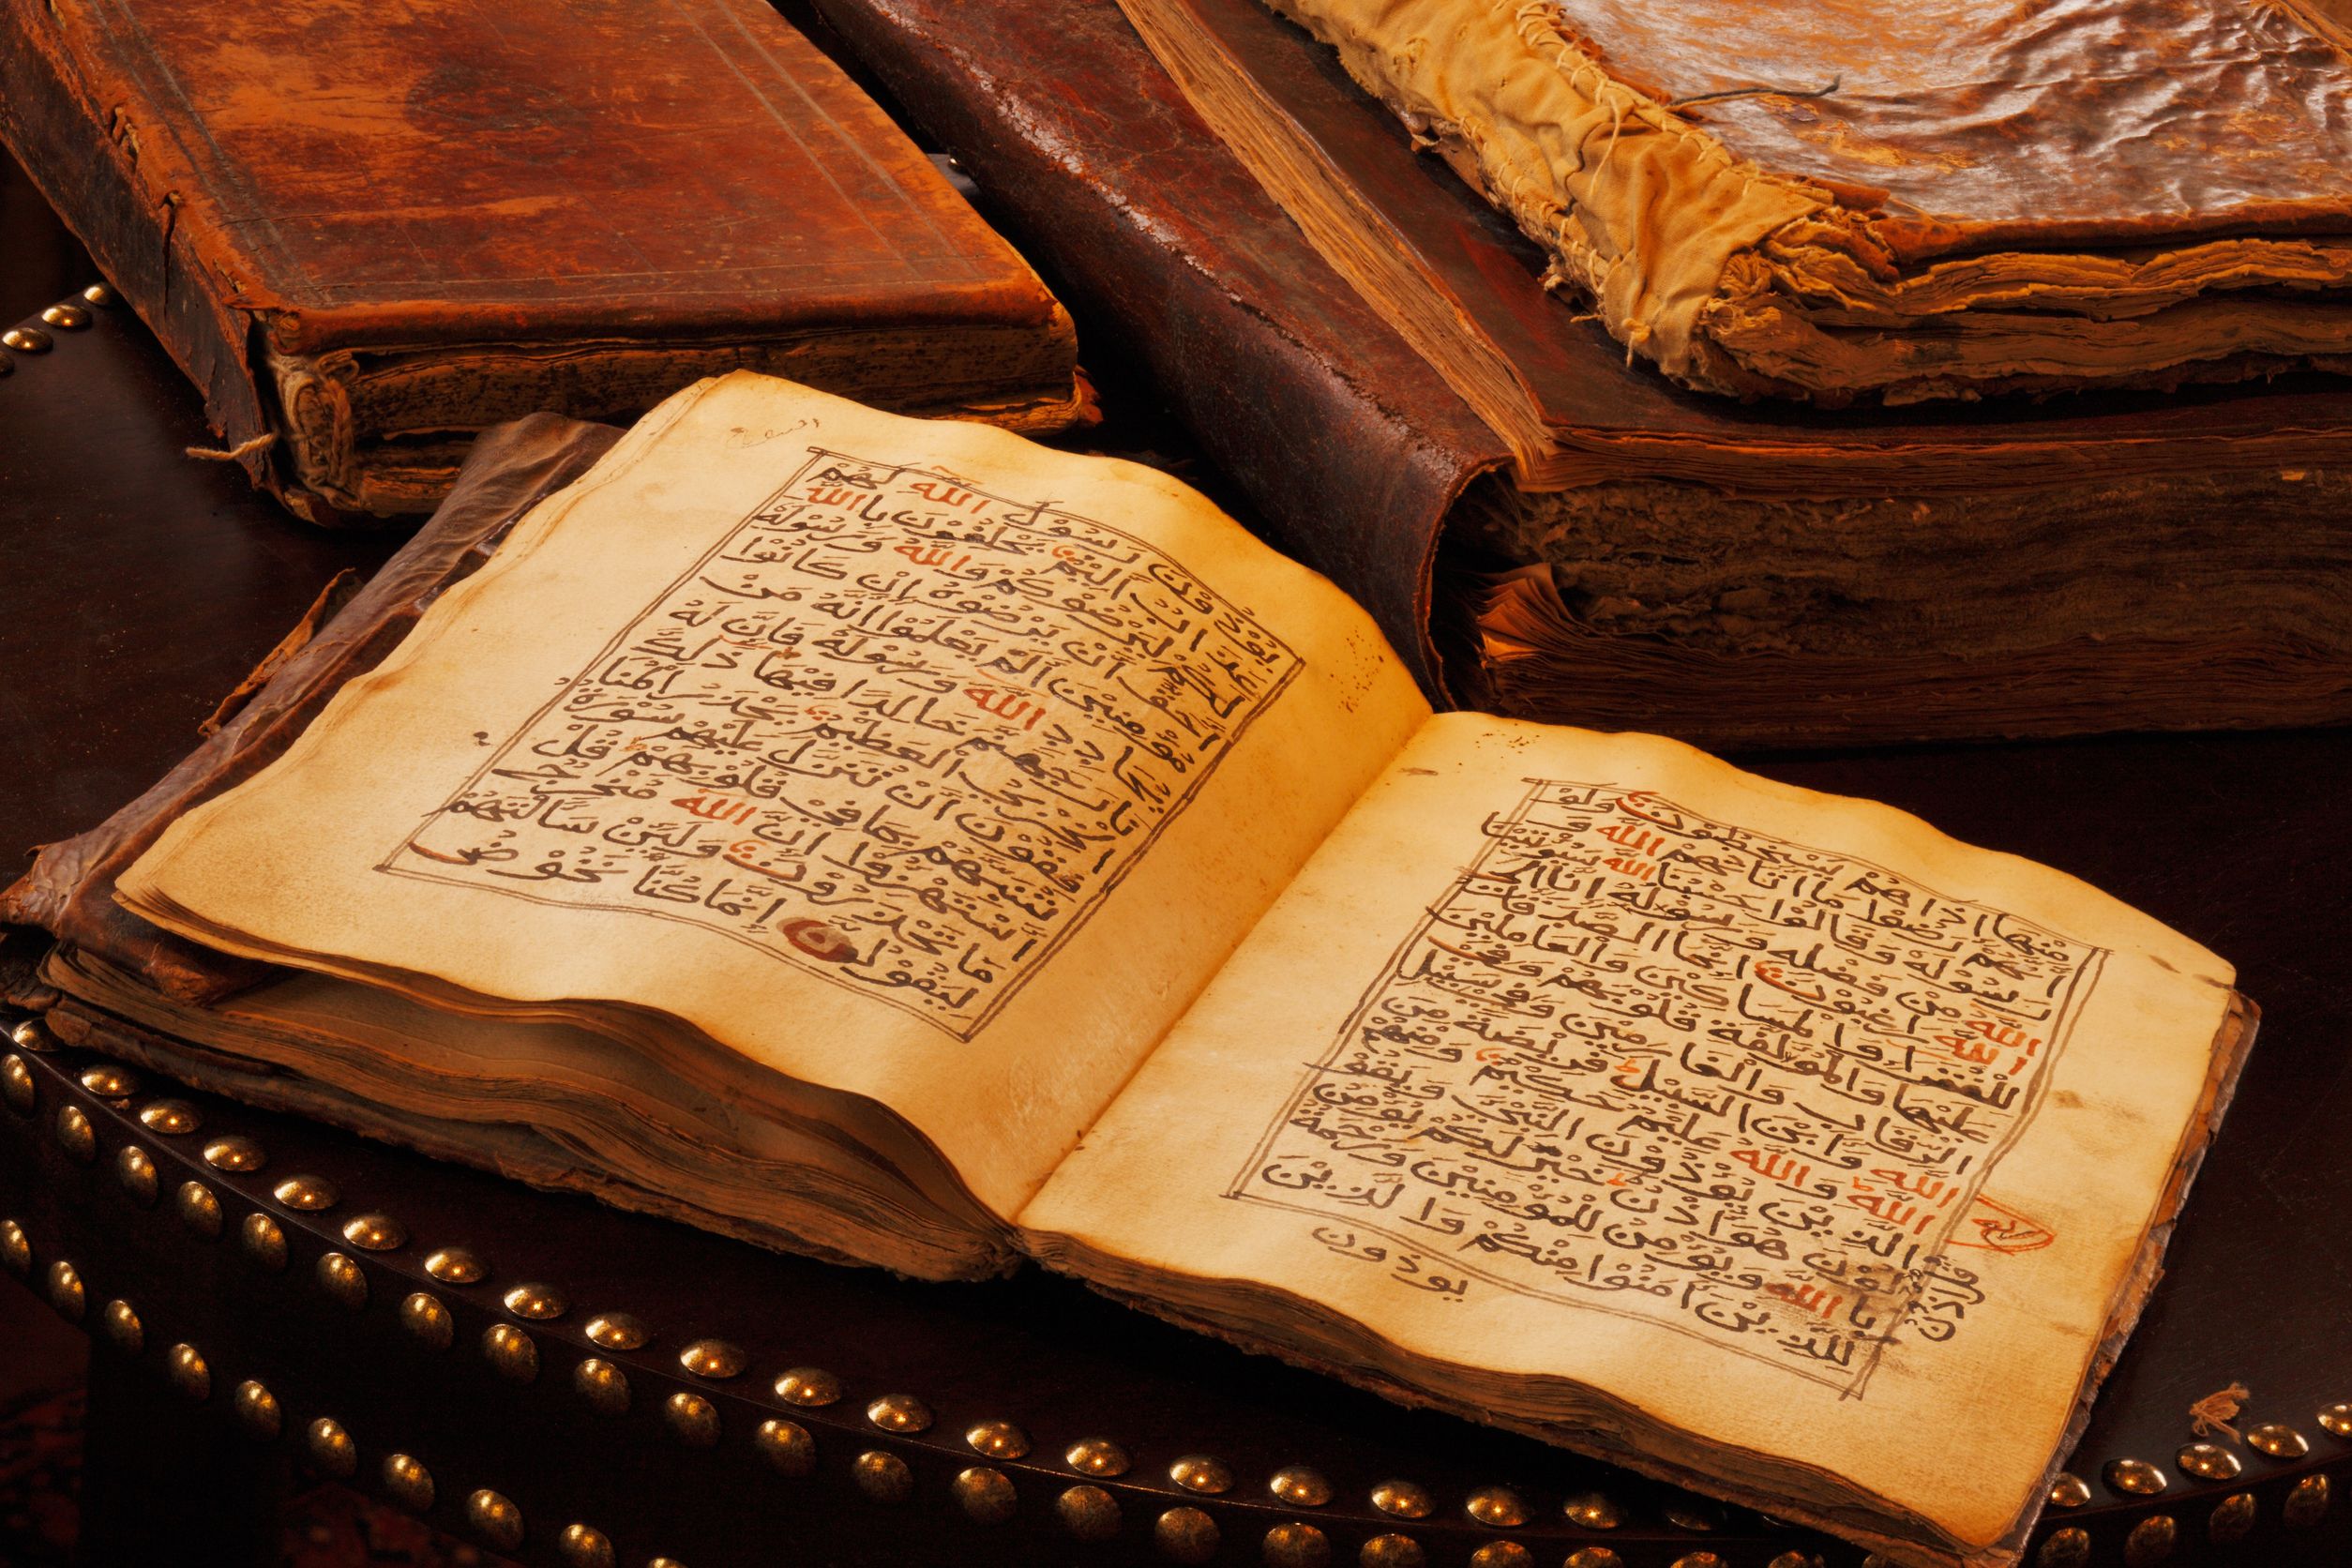 منها اذا هم يسخطون ولو
انهم رضوا ما اتاهم الله و
رسوله وقالوا حسبنا الله سيوتينا
الله من فضله ورسوله انا الى
الله راغبون انما الصدقات
للفقراء والمساكين والعاملين
عليها والمولفة قلوبهم وفي
الرقاب والغارمين وفي سبيل
الله وابن السبيل فريضة من
الله والله عليم حكيم ومنهم
الذين يوذون النبي ويقو
لون هو اذن قل اذن خير لكم يومن
بالله ويومن للمومنين ورحمة
للذين امنوا منكم والذين
يوذون
يوذون رسول الله لهم
عذاب اليم يحلفون بالله
لكم ليرضوكم والله ورسوله
احق ان يرضوه ان كانوا
مومنين الم يعلموا انه من
يحادد الله ورسوله فان له
نار جهنم خالدا فيها ذلك
الخزي العظيم يحذر المنا
فقون ان تنزل عليهم سورة
تنبئهم بما في قلوبهم قل
استهزءوا ان الله مخرج
ما تحذرون ولئن سالتهم
ليقولن انما كنا نخوض